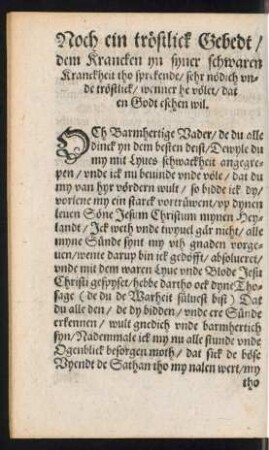 Noch ein tröstlick Gebedt /
dem Krancken yn syner schwaren
Kranckheit tho sprekende / sehr nödich vn-
de tröstlick / wenner he völet / dat
en Godt eschen wil.
OCh Barmhertige Vader / de du alle
dinck yn dem besten deist / Dewyle du
my mit Lyues schwackheit angegre-
pen / vnde ick nu beuinde vnde völe / dat du
my van hyr vördern wult / so bidde ick dy /
vorlene my ein starck vortruwent / vp dynen
leuen Söne Jesum Christum mynen Hey-
landt / Ick weth vnde twyuel går nicht / alle
myne Sünde synt my vth gnaden vorge-
uen / wente darup bin ick gedöfft / absolueret /
vnde mit dem waren Lyue vnde Blode Jesu
Christi gespyset / hebbe dartho ock dyne Tho-
sage (de du de Warheit süluest bist) Dat
du alle den / de dy bidden / vnde ere Sünde
erkennen / wult gnedich vnde barmhertich
syn / Nademmale ick my nu alle stunde vnde
Ogenblick besorgen moth / dat sick de böse
Vyendt de Sathan tho my nalen wert / my
tho